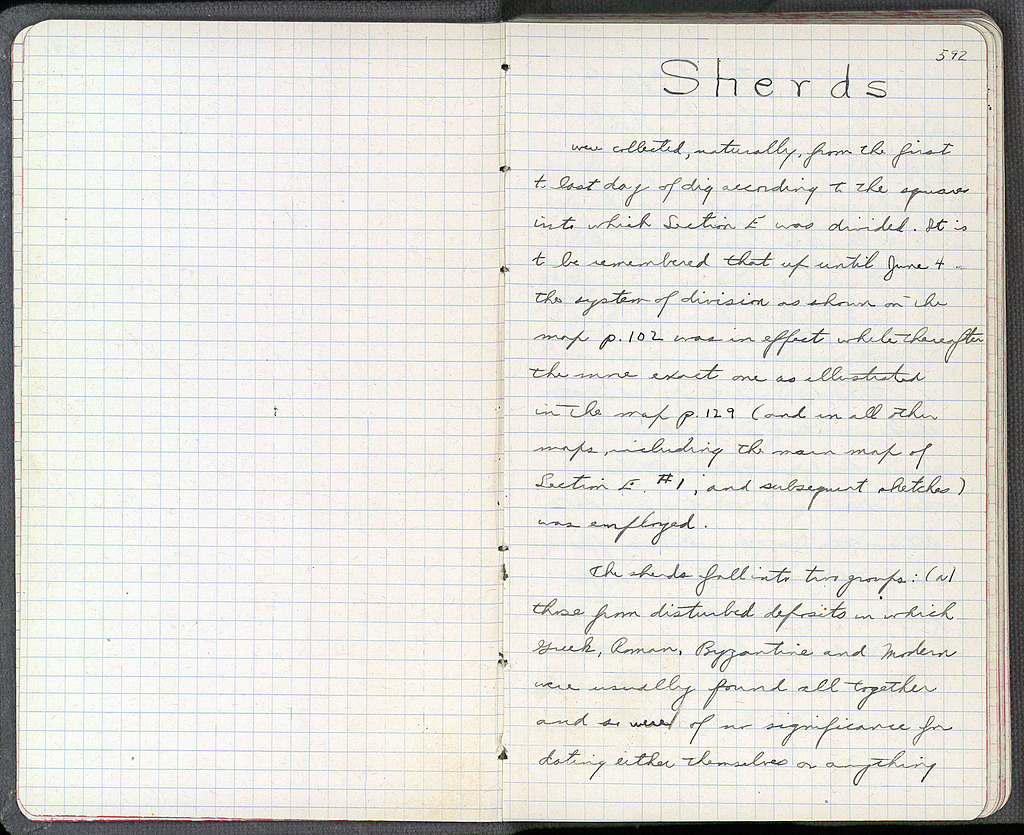 592
Sherds
were collected, naturally, from the first
to last day of dig according to the squares
into which Section E was divided. It is
to be remembered that up until June 4 -
the system of division as shown on the
map p.102 was in effect while thereafter
the more exact one as illustrated
in the map p.129 (and in all other
maps, including the main map of
Section E. #1, and subsequent sketches)
was employed.
The sherds fall into two groups: (a)
those from disturbed deposits in which
Greek, Roman, Byzantine and Modern
were usually found all together
and so were of no significance for
dating either themselves or anything